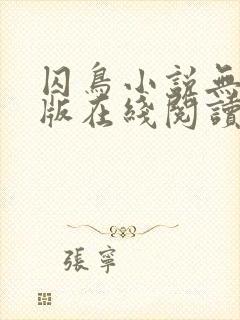 囚鳥小說無
版在綫閱讀
張寧